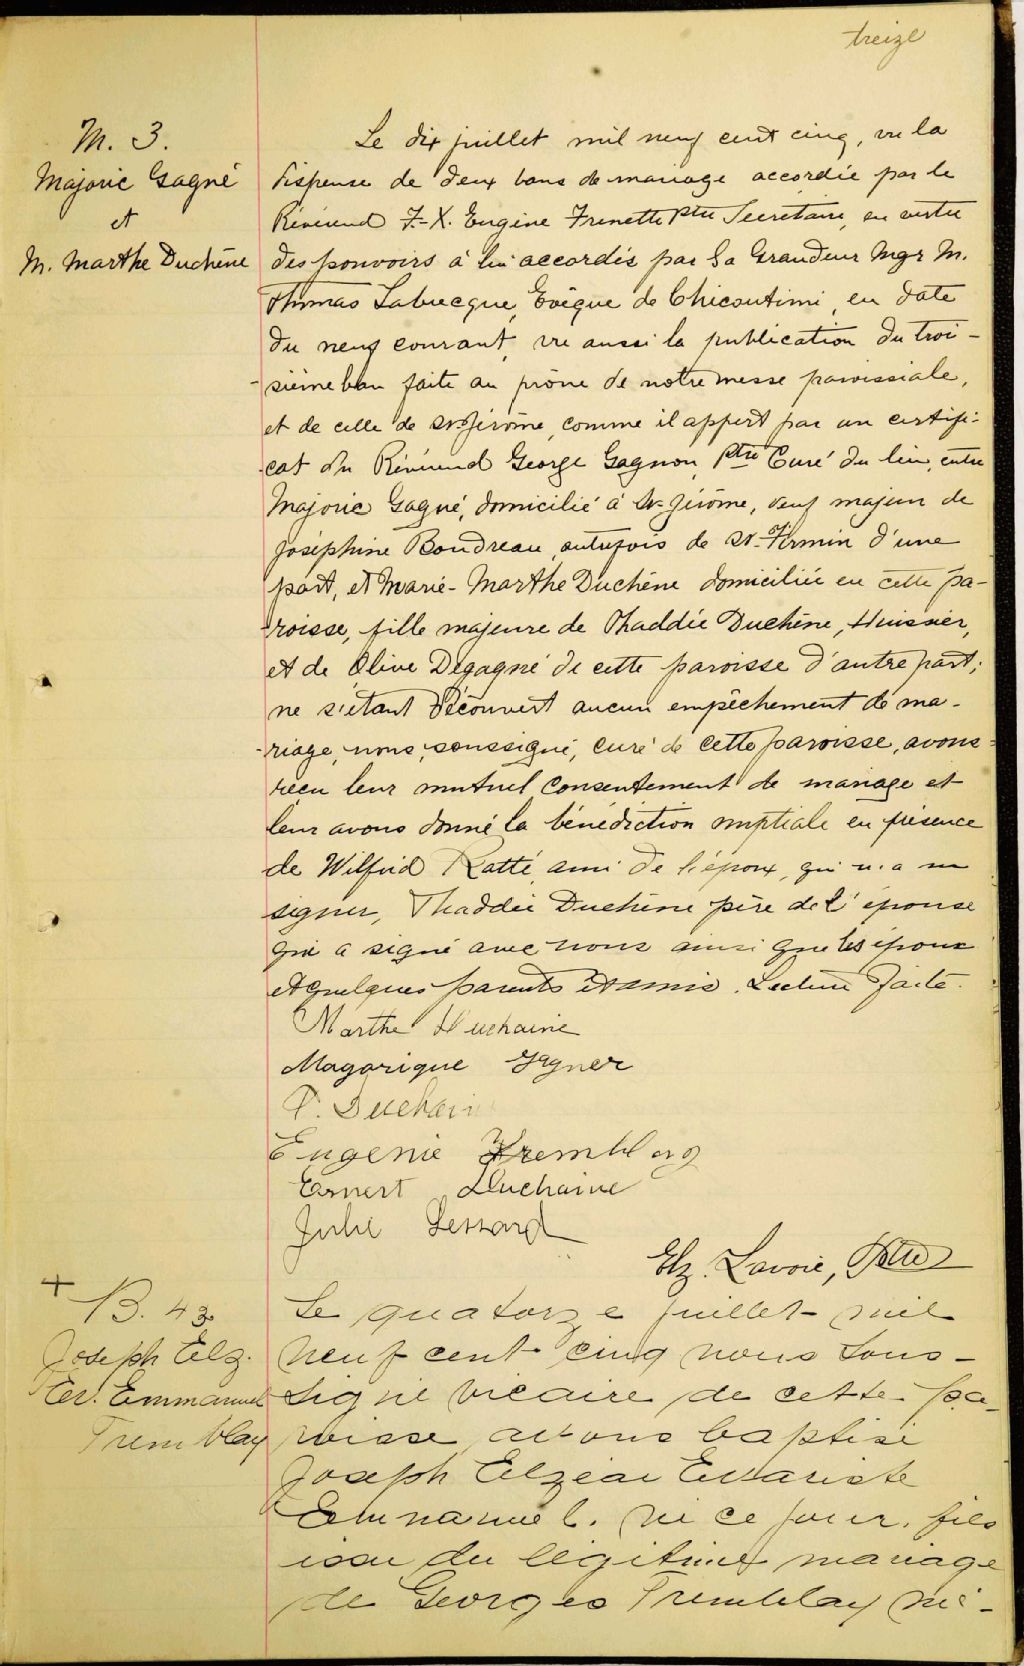 treize
M. 3.
Majoric Gagné
et
M. Marthe Duchéne
Le dix juillet mil neuf cent cinq, vu la
dispense de deux bans de mariage accordée par le
Révérend F.-X. Eugène Frenette Ptre Secrétaire, en vertu
des pouvoirs à lui accordés par Sa Grandeur Mgr M.
Thomas Labrecque, Evêque de Chicoutimi, en date
du neuf courant, vu aussi la publication du troi-
-sième ban faite au prône de notre messe paroissiale,
et de celle de St-Jérôme, comme il appert par un certifi-
-cat du Révérend George Gagnon, Ptre Curé du lieu, entre
Majoric Gagné, domicilié à St-Jérôme, veuf majeur de
Joséphine Boudreau, autrefois de St-Firmin d'une
part, et Marie-Marthe Duchéne domiciliée en cette pa-
-roisse, fille majeure de Thaddée Duchéne, Huissier,
et de Olive Dégagné de cette paroisse d'autre part;
ne s'étant découvert aucun empêchement de ma-
-riage, nous, soussigné, curé de cette paroisse, avons
reçu leur mutuel consentement de mariage et
leur avons donné la bénédiction nuptiale en présence
de Wilfrid Ratté ami de l'époux, qui n'a su
signer, Thaddée Duchéne père de l'épouse
qui a signé avec nous ainsi que les époux
et quelques parents et amis. Lecture faite.
Marthe Duchaine
Magorique Gagner
T. Duchaine
Eugenie Tremblay
Ernest Duchaine
Julie Lessard
Elz. Lavoie, Ptre
+
B. 43
Joseph Elz.
Ev. Emmanuel
Tremblay
Le quatorze juillet mil
neuf cent cinq nous sous-
signé vicaire de cette pa-
roisse avons baptisé
Joseph Elzéar Evariste
Emmanuel. né ce jour, fils
issu du légitime mariage
de Georges Tremblay me-